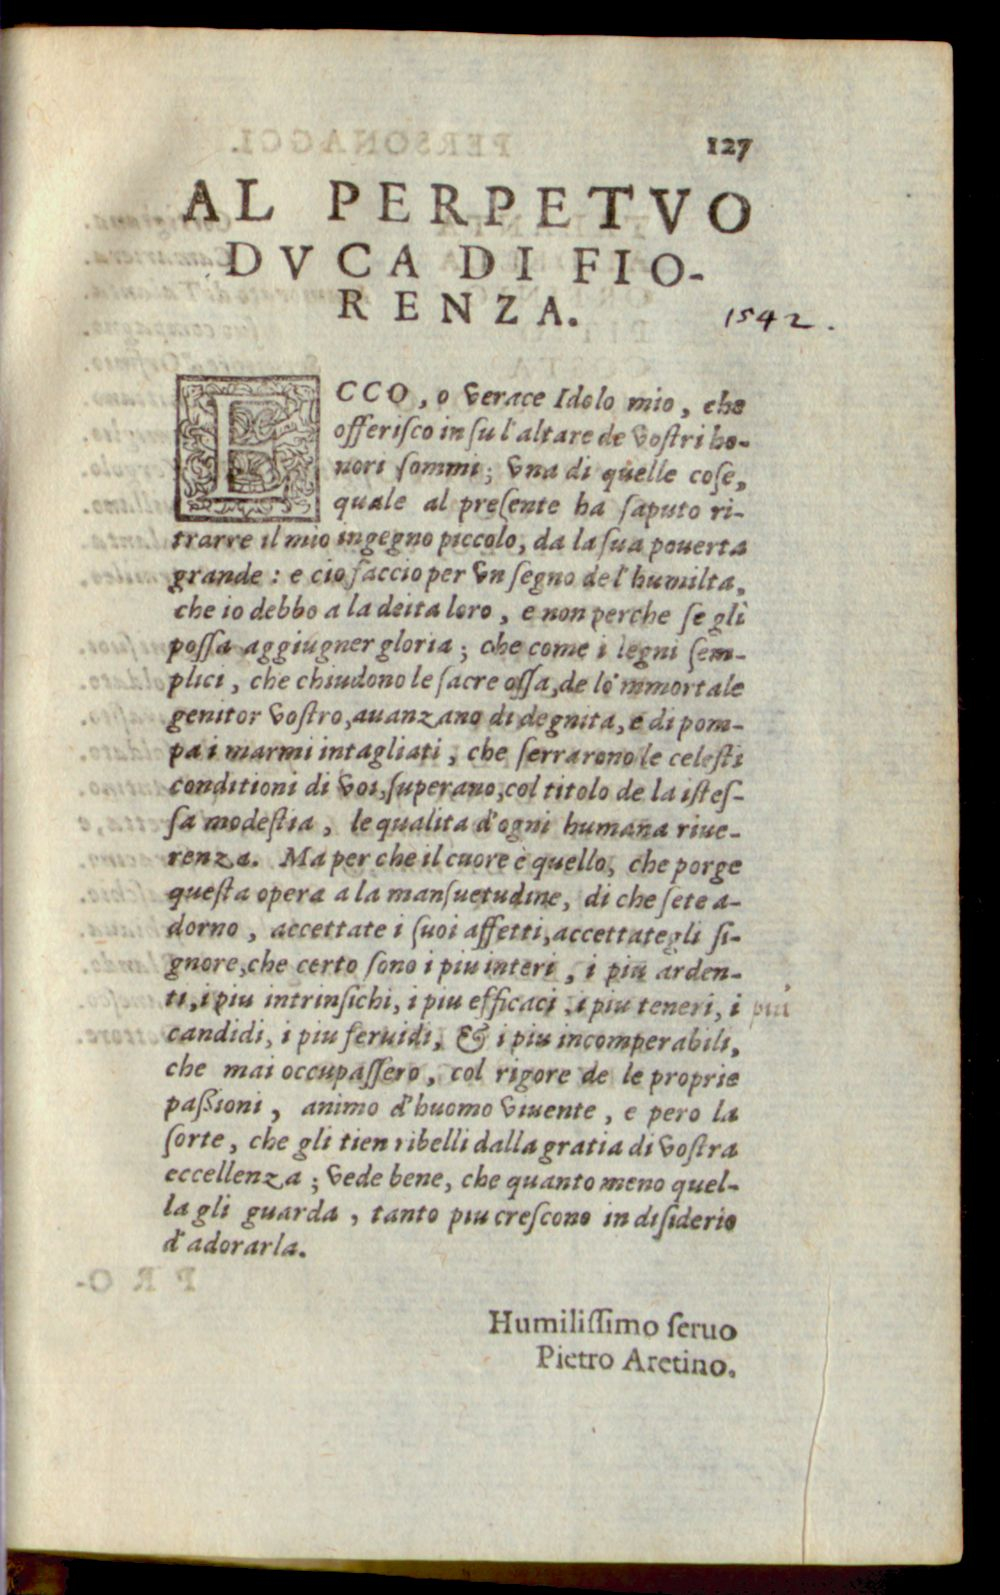 127
AL PERPETVO
DVCA DI FIO-
RENZA.
1542.
ECCO, o verace Idolo mio, che
offeriſco in ſu l'altare de voſtri ho-
nori ſommi; vna di quelle coſe,
quale al preſente ha ſaputo ri-
trarre il mio ingegno piccolo, da la ſua pouerta
grande: e cio faccio per vn ſegno de l'humilta,
che io debbo a la deita loro, e non perche ſe gli
poſſa aggiugner gloria; che come i legni ſem-
plici, che chiudono le ſacre oſſa, de lo'mmortale
genitor voſtro, auanzano di degnita, e di pom-
pa i marmi intagliati, che ſerrarono le celeſti
conditioni di voi, ſuperano, col titolo de la iſteſ-
ſa modeſtia, le qualita d'ogni humana riue-
renza. Ma per che il cuore è quello, che porge
queſta opera a la manſuetudine, di che ſete a-
dorno, accettate i ſuoi affetti, accettategli ſi-
gnore, che certo ſono i piu interi, i piu arden-
ti, i piu intrinſichi, i piu efficaci, i piu teneri, i più
candidi, i piu feruidi, & i piu incomperabili,
che mai occupaſſero, col rigore de le proprie
paßioni, animo d'huomo viuente, e pero la
ſorte, che gli tien ribelli dalla gratia di voſtra
eccellenza; vede bene, che quanto meno quel-
la gli guarda, tanto piu creſcono in diſiderio
d'adorarla.
Humiliſſimo ſeruo
Pietro Aretino.